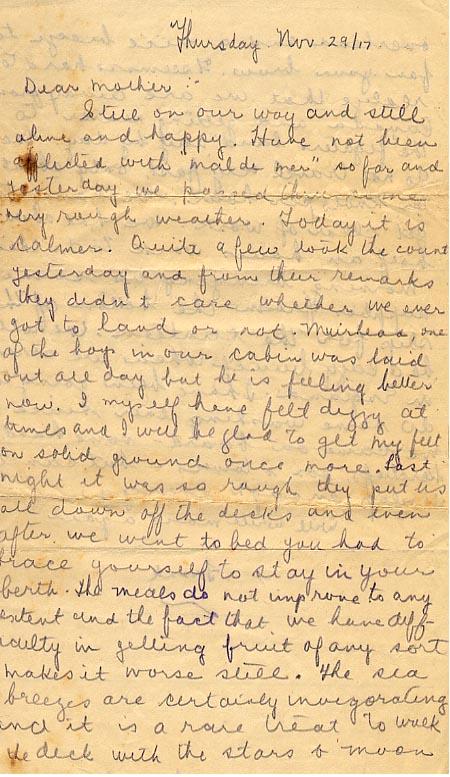 Thursday. Nov 29/17.
Dear Mother :-
Still on our way and still
alive and happy. Have not been
afflicted with "mal de mer" so far and
yesterday we passed thru some
very rough weather. Today it is
calmer. Quite a few took the count
yesterday and from their remarks
they didn't care whether we ever
got to land or not. Muirhead, one
of the boys in our cabin was laid
out all day but he is feeling better
now. I myself have felt dizzy at
times and I will be glad to get my feet
on solid ground once more. Last
night it was so rough they put us
all down off the decks and even
after we went to bed you had to
brace yourself to stay in your
berth. The meals do not improve to any
extent and the fact that we have diff-
iculty in getting fruit of any sort
makes it worse still. The sea
breezes are certainly invigorating
and it is a rare treat to walk
the deck with the stars & moon